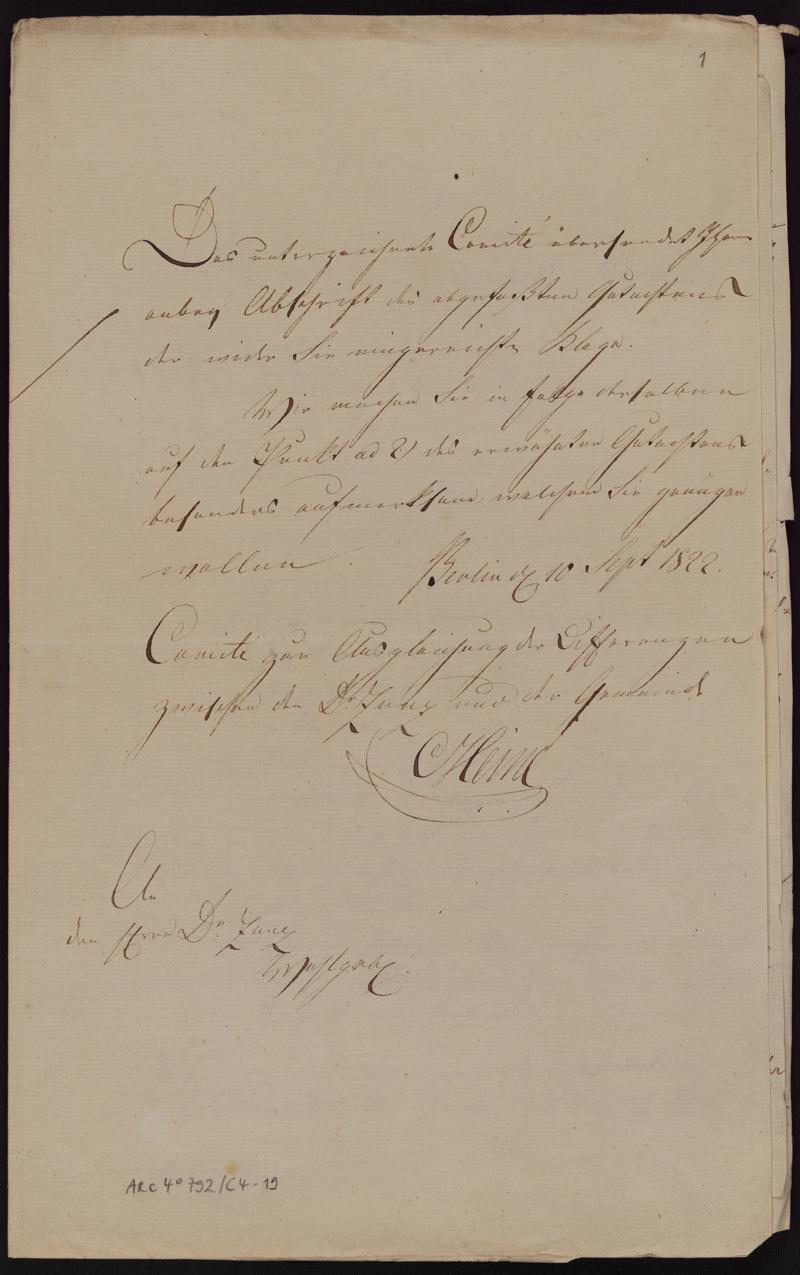 1
Das unterzeichnete Comité übersendet Ihnen
anbey Abschrift des abgefaßten Gutachtens
der wider Sie eingereichte Klage.
Wir machen Sie in folge derselben
auf den Punkt ad 2) des erwähnten Gutachtens
besonders aufmerksam, welchem Sie genügen
wollen.
Berlin d 10 Sept 1822.
Comité zur Ausgleichung der Differenzen
zwischen den Dr. Zunz und der Gemeinde
An
den Herrn Dr. Zunz
Wohlgeb.
ARC 4° 792/C4-19